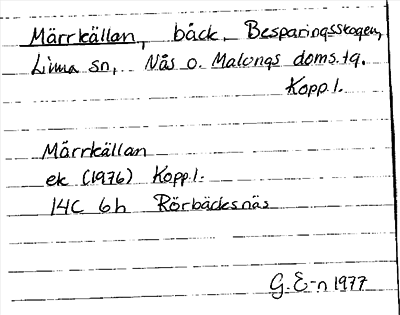 Märrkällan, bäck, Besparingsskogen,
Lima sn, Nås o. Malungs doms.tg.
Koppl.
Märrkällan
ek (1976) Koppl.
14C 6h Rörbäcksnäs
G. E-n 1977